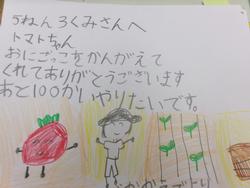 5ねん3くみさんへ
トマトちゃん
おにごっこをかんがえて
くれてありがとうございます
あと100かいやりたいです。